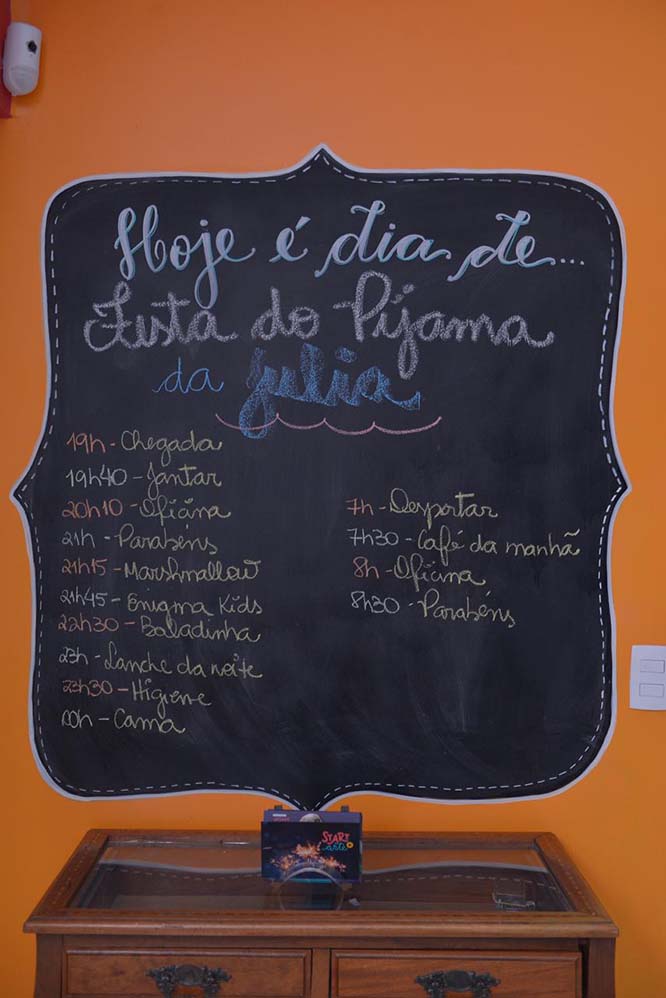 Hoje é dia de...
Festa do Pijama
da Julia
19h - Chegada
19h40 - Jantar
20h10 - Oficina
21h - Parabéns
21h15 - Marshmallow
21h45 - Enigma Kids
22h30 - Baladinha
23h - Lanche da noite
23h30 - Higiene
00h - Cama
7h - Despertar
7h30 - Café da manhã
8h - Oficina
8h30 - Parabéns
START
é arte